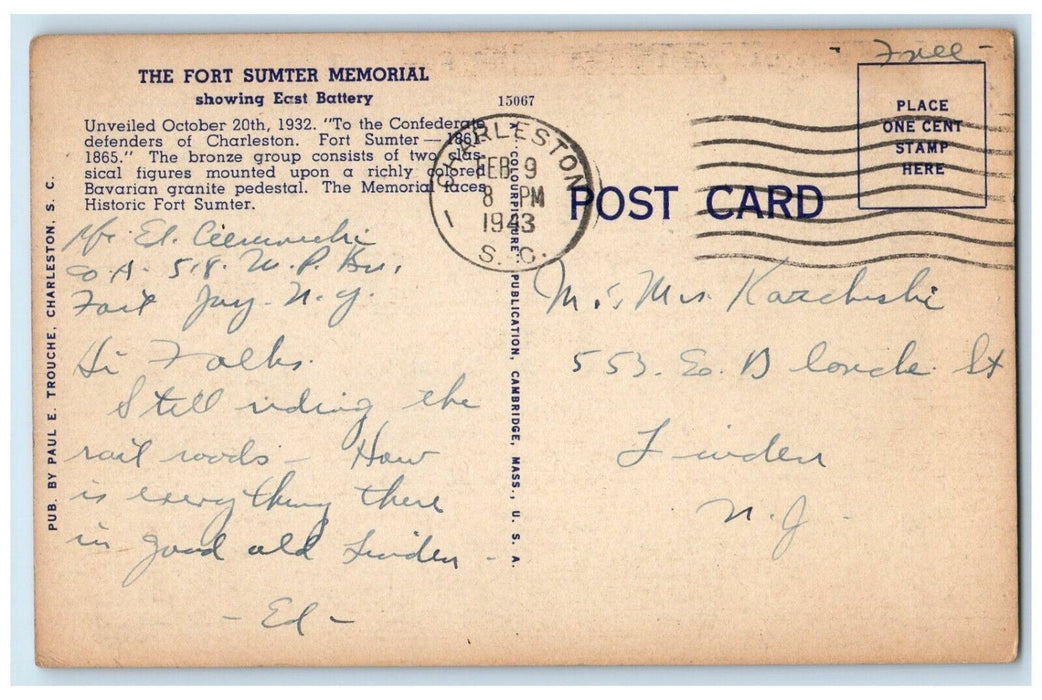 THE FORT SUMTER MEMORIAL
showing East Battery
Unveiled October 20th, 1932. "To the Confederate
defenders of Charleston. Fort Sumter — 1861-
1865." The bronze group consists of two clas-
sical figures mounted upon a richly colored
Bavarian granite pedestal. The Memorial faces
Historic Fort Sumter.
PUB. BY PAUL E. TROUCHE, CHARLESTON, S. C.
15067
COLOURPICTURE PUBLICATION, CAMBRIDGE, MASS., U. S. A.
CHARLESTON
FEB 9
8 PM
1943
S. C.
POST CARD
Free -
PLACE
ONE CENT
STAMP
HERE
Ed.
Co A. 518. M. P. Bn.
Fort Jay. N. Y.
Hi Folks.
Still riding the
rail roads - How
is everything there
in good old Linden -
- Ed -
Mrs.
553. E. St
Linden
N. J.